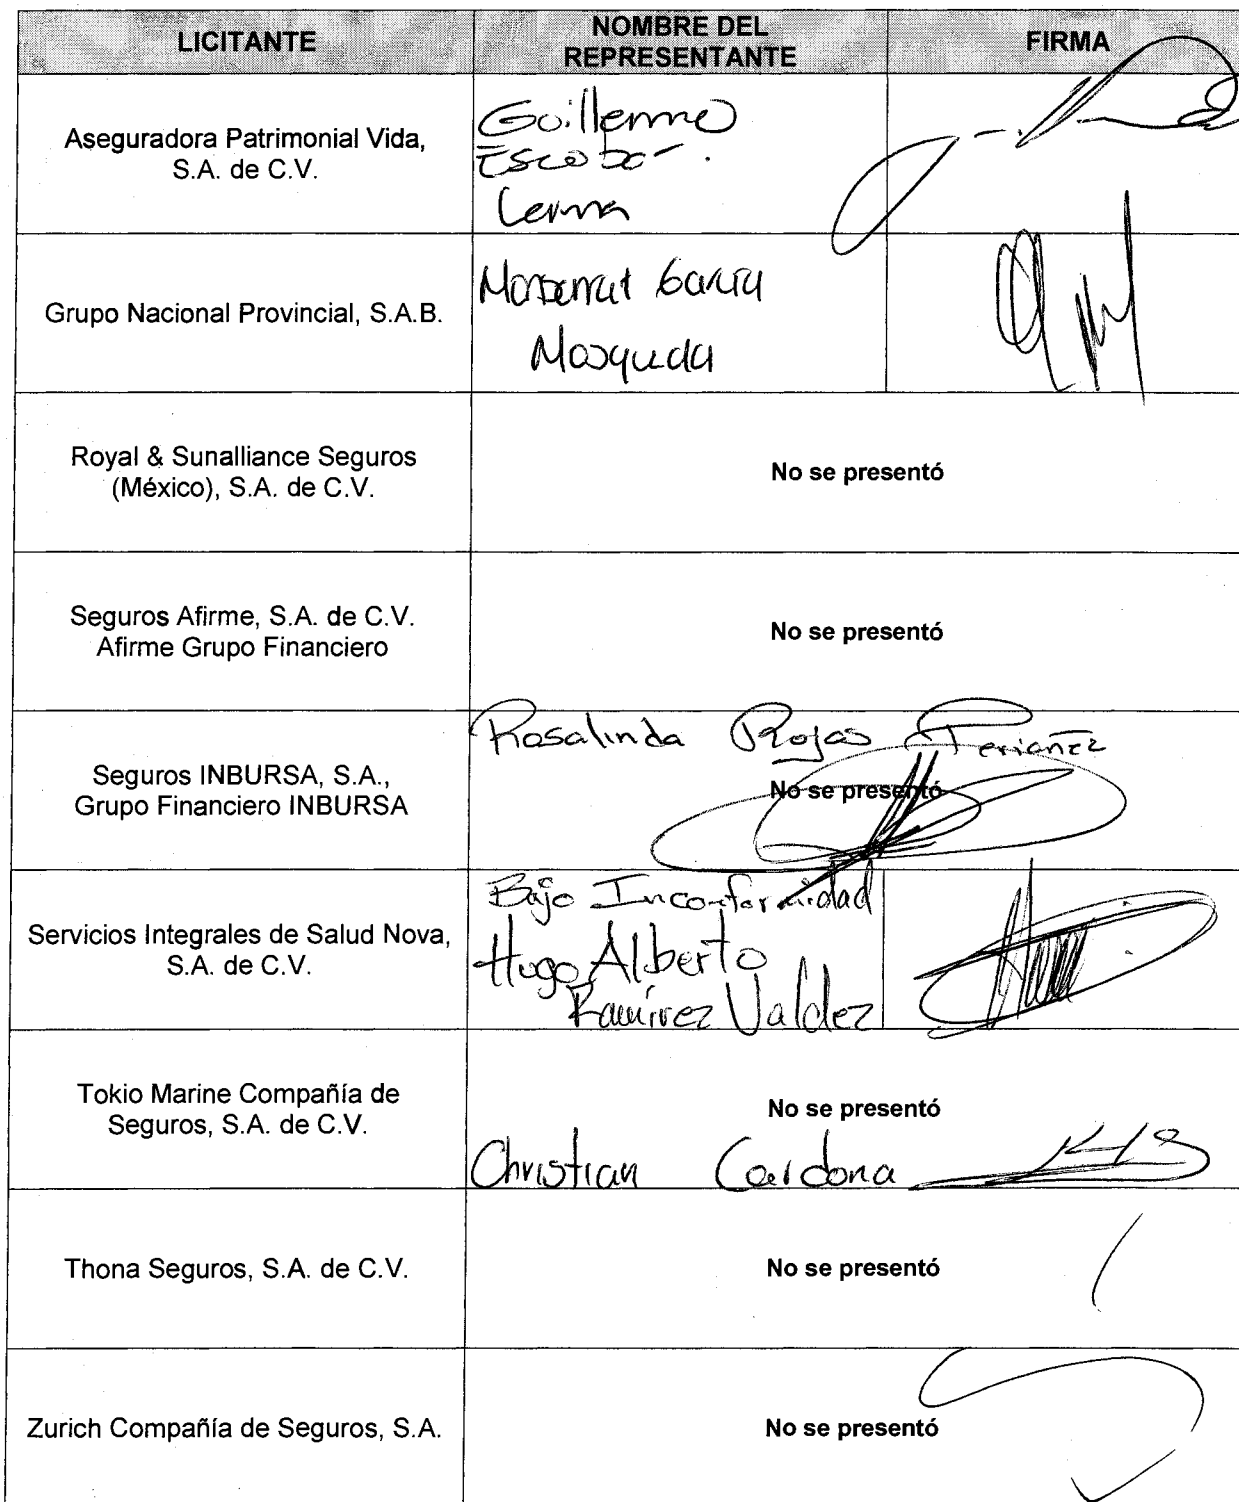 LICITANTE
NOMBRE DEL
REPRESENTANTE
FIRMA
Aseguradora Patrimonial Vida,
S.A. de C.V.
Guillermo
Escobar
Lerma
Grupo Nacional Provincial, S.A.B.
Monserrat García
Mosqueda
Royal & Sunalliance Seguros
(México), S.A. de C.V.
No se presentó
Seguros Afirme, S.A. de C.V.
Afirme Grupo Financiero
No se presentó
Seguros INBURSA, S.A.,
Grupo Financiero INBURSA
Rosalinda Rojas Periañez
No se presentó
Servicios Integrales de Salud Nova,
S.A. de C.V.
Bajo Inconformidad
Hugo Alberto
Ramírez Valdez
Tokio Marine Compañía de
Seguros, S.A. de C.V.
No se presentó
Christian Cardona
Thona Seguros, S.A. de C.V.
No se presentó
Zurich Compañía de Seguros, S.A.
No se presentó